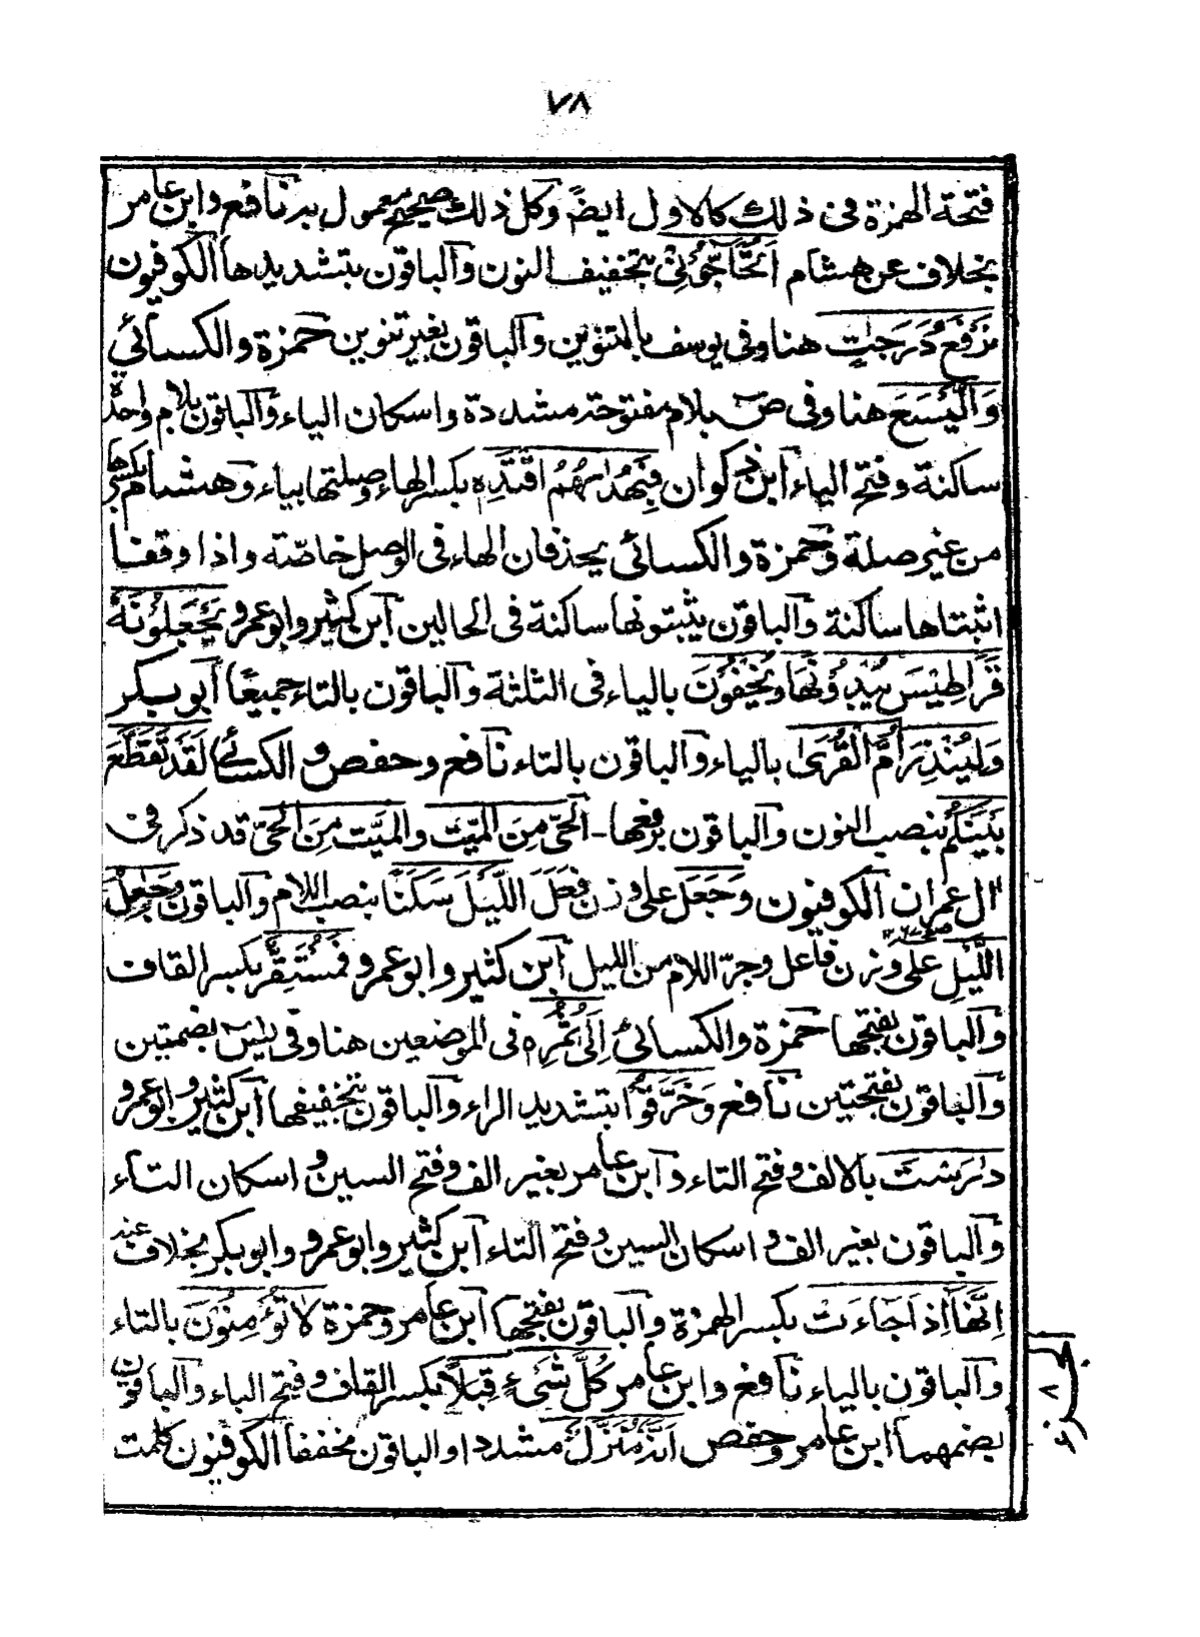 ٧٨
فتحة الهمزة فى ذلك كالاول ايضا وكل ذلك صحيح معمول به نافع وابن عامر
بخلاف عن هشام اَتُحَآجُّوْنِىْ بتخفيف النون والباقون بتشديدها الكوفيون
نَرْفَعُ دَرَجٰتٍ هنا وفى يوسف بالتنوين والباقون بغير تنوين حمزة والكسائى
وَالَّيْسَعَ هنا وفى صٓ بلام مفتوحة مشددة واسكان الياء والباقون بلام واحدة
ساكنة وفتح الياء ابن ذكوان فَبِهُدٰىهُمُ اقْتَدِهِ بكسر الهاء وصلتها بياء وهشام بكسرها
من غير صلة وحمزة والكسائى يحذفان الهاء فى الوصل خاصّة واذا وقفا
اثبتاها ساكنة والباقون يثبتونها ساكنة فى الحالين ابن كثير وابو عمرو يَجْعَلُوْنَهٗ
قَرَاطِيْسَ يُبْدُوْنَهَا وَيُخْفُوْنَ بالياء فى الثلثة والباقون بالتاء جميعًا ابو بكر
وَلِيُنْذِرَ اُمَّ الْقُرٰى بالياء والباقون بالتاء نافع وحفص والكسائى لَقَدْ تَقَطَّعَ
بَيْنَكُمْ بنصب النون والباقون برفعها - الْحَىَّ مِنَ الْمَيِّتِ والْمَيِّتَ مِنَ الْحَىِّ قد ذكر فى
اٰل عمران الكوفيون وَجَعَلَ على وزن فَعَلَ اللَّيْلَ سَكَنًا بنصب اللام والباقون وَجٰعِلُ
اللَّيْلِ على وزن فاعل وجرّ اللام من الليل ابن كثير وابو عمرو فَمُسْتَقِرٌّ بكسر القاف
والباقون بفتحها حمزة والكسائى اِلٰى ثُمُرِهٖ فى الموضعين هنا وفى يٰسٓ بضمتين
والباقون بفتحتين نافع وَخَرَّقُوْا بتشديد الراء والباقون بتخفيفها ابن كثير وابو عمرو
دٰرَسْتَ بالالف وفتح التاء وابن عامر بغير الف وفتح السين واسكان التاء
والباقون بغير الف واسكان السين وفتح التاء ابن كثير وابو عمرو وابو بكر بخلاف عنه
اِنَّهَا اِذَا جَآءَتْ بكسر الهمزة والباقون بفتحها ابن عامر وحمزة لَا تُؤْمِنُوْنَ بالتاء
والباقون بالياء نافع وابن عامر كُلَّ شَىْءٍ قِبَلًا بكسر القاف وفتح الباء والباقون
بضمهما ابن عامر وحفص اَنَّهٗ مُنَزَّلٌ مشددا والباقون مخففا الكوفيون كلمت
الجزء
٨